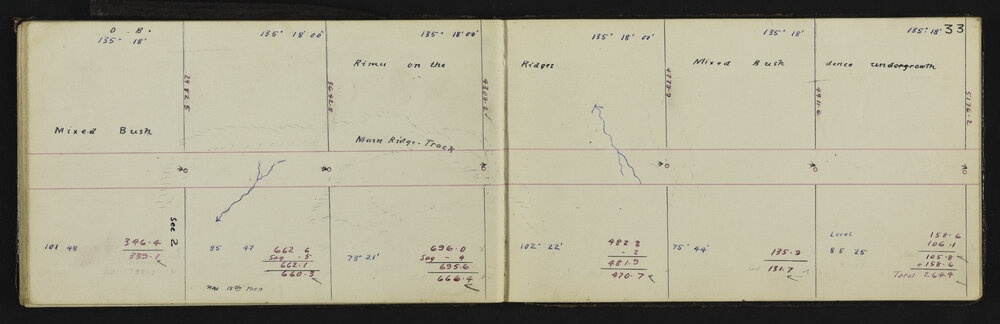 D. B.
135° 18'
135° 18' 00"
135° 18' 00"
Rimu on the
Mixed Bush
Main Ridge-Track
Sec 2
101 48
346.4
339.1
85 47
662 6
Sag - 5
662.1
660.3
73° 21'
696.0
Sag - 4
695.6
666.4
33
135° 18' 00"
135° 18'
135° 18'
Ridges
Mixed Bush
dence undergrowth
4911.6
5176.2
102° 22'
482 2
- 2
481.9
470.7
75° 44'
135.9
131.7
Level
85 25
158.6
106.1
105.8
+158.6
Total 264.4